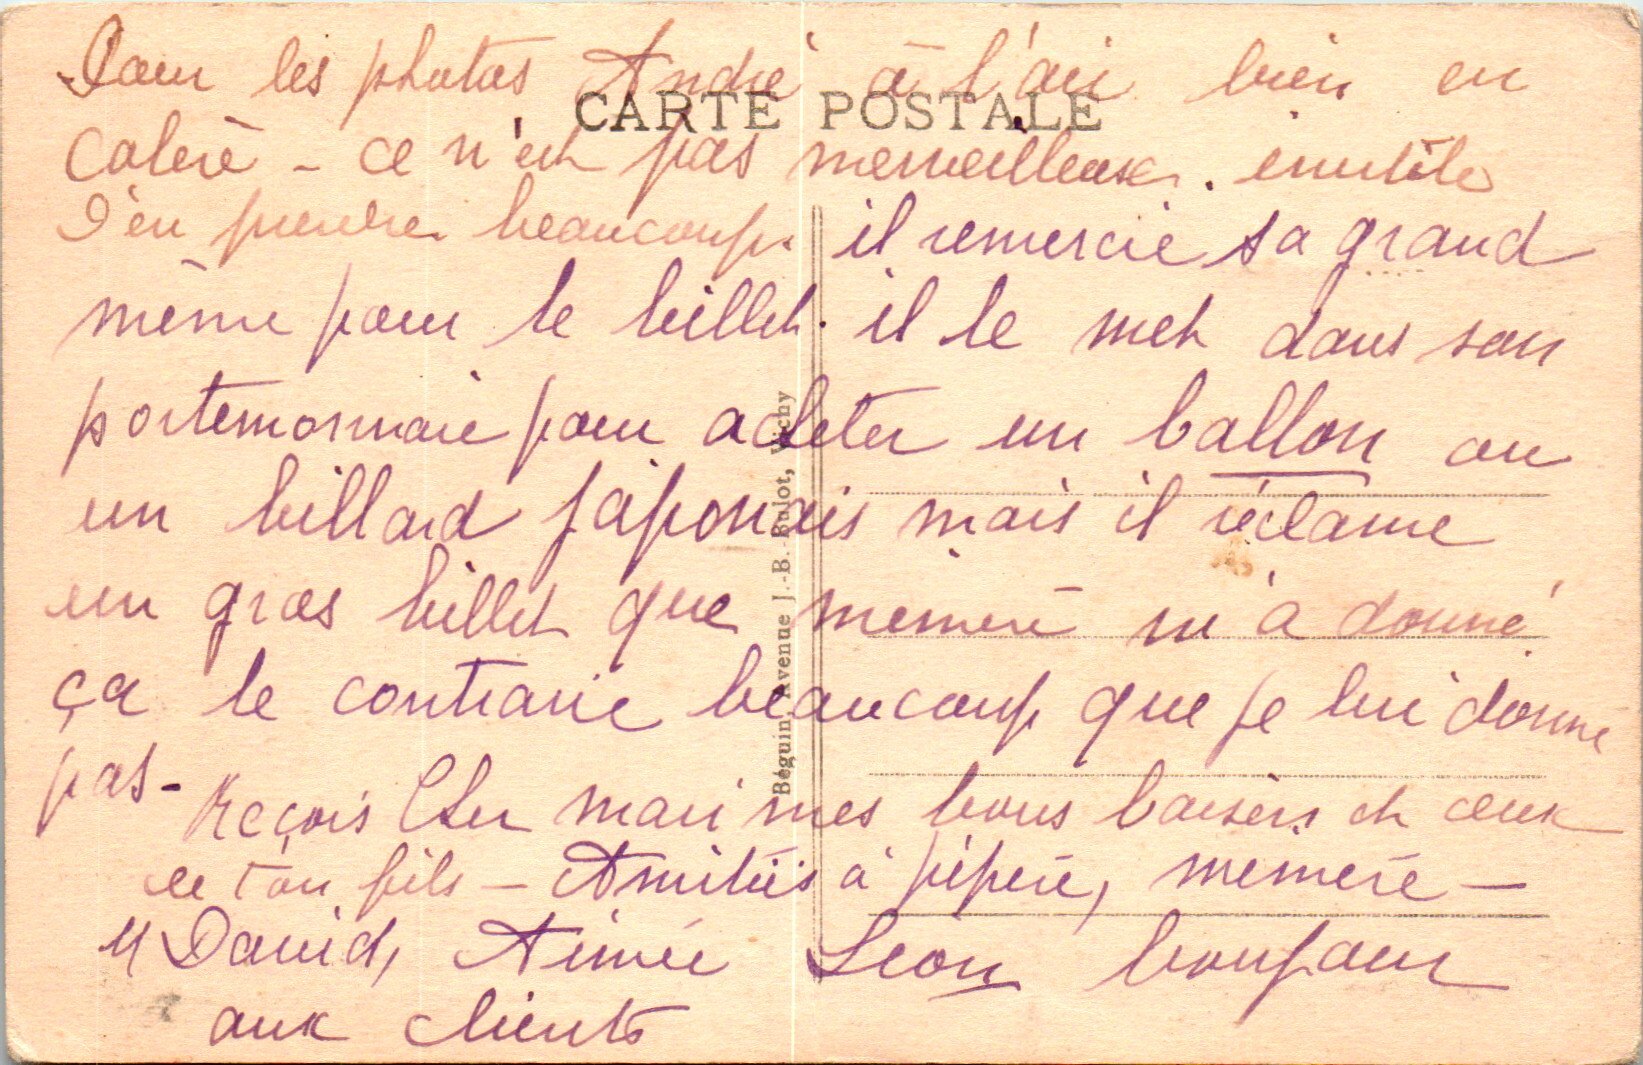 Pour les photos André à l'air bien en
CARTE POSTALE
colère - ce n'est pas merveilleux. inutile
d'en prendre beaucoup. il remercie sa grand
mème pour le billet. il le met dans son
portemonnaie pour acheter un ballon ou
un billard japonais mais il réclame
un gros billet que memere m'a donné
ça le contrarie beaucoup que je lui donne
pas -
Reçois Cher mari mes bons baisers et ceux
de ton fils - Amitiés à pépère, memere -
M David, Aimée Leon bonjour
aux clients
Béguin, Avenue J.-B.-Bulot, Vichy